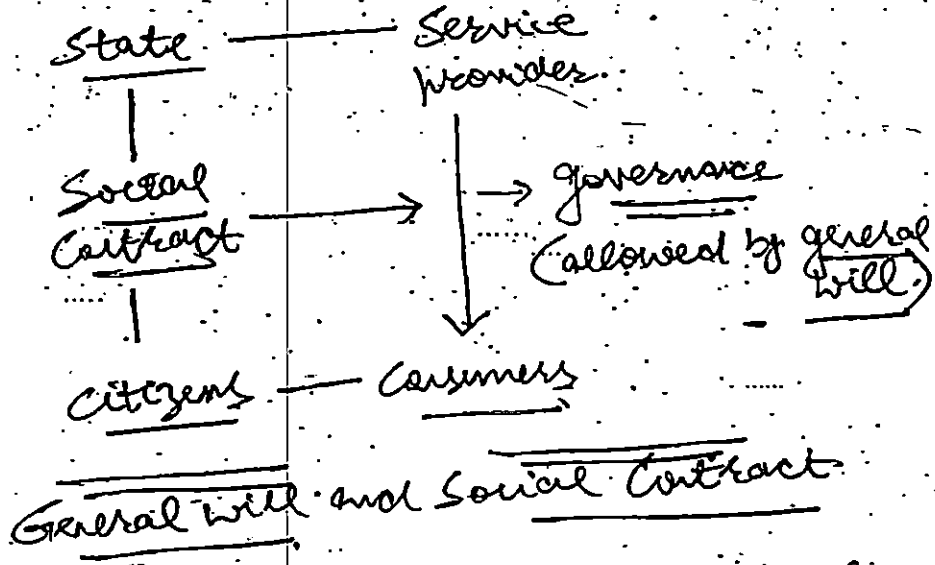 State Service
provider.
Social governance
Contract (allowed by general
will.)
Citizens Consumers
General will and Social Contract